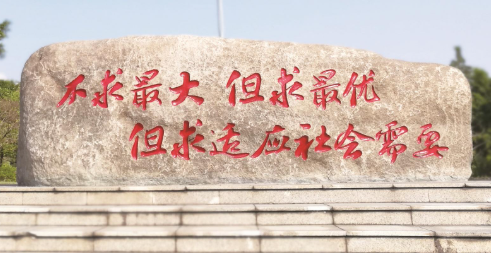 不求最大 但求最优
但求适应社会需要